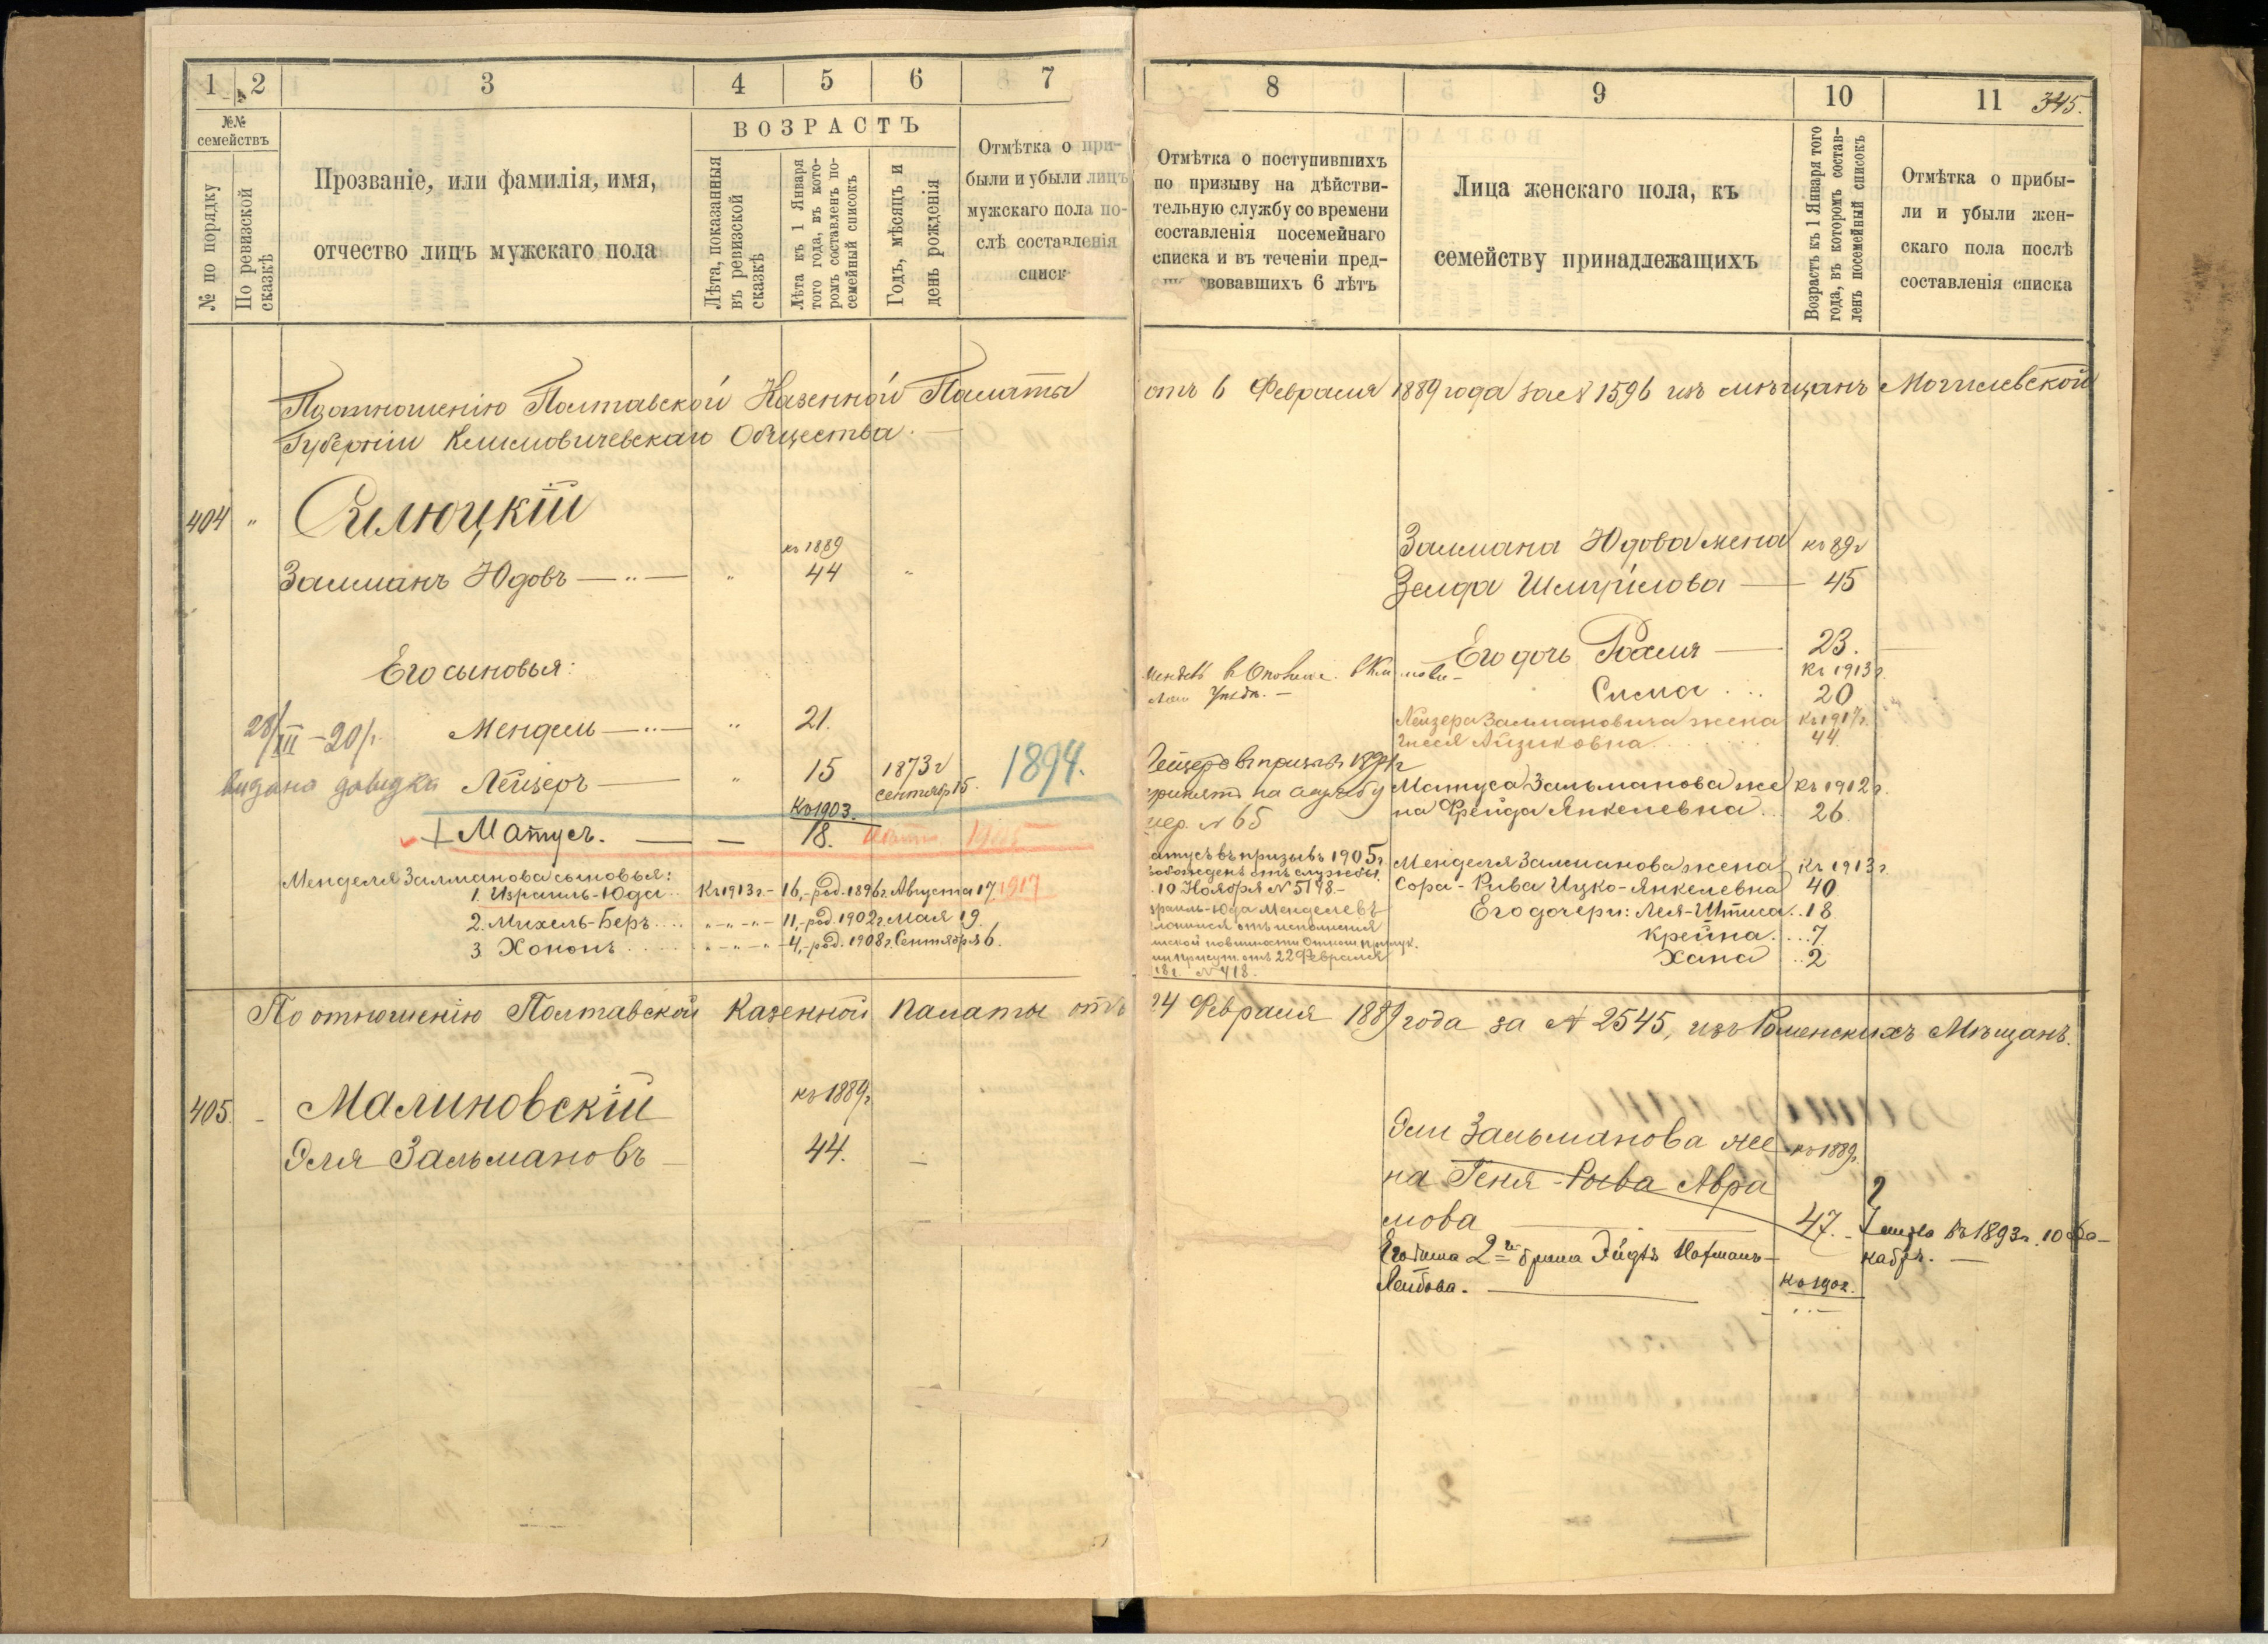 1 2 3 4 5 6 7
№№ семействъ
№ по порядку
По ревизской сказкѣ
Прозваніе, или фамилія, имя,
отчество лицъ мужскаго пола
ВОЗРАСТЪ
Лѣта, показанныя
въ ревизской
сказкѣ
Лѣта къ 1 Января
того года, въ кото-
ромъ составленъ по-
семейный списокъ
Годъ, мѣсяцъ и
день рожденія
Отмѣтка о при-
были и убыли лицъ
мужскаго пола по-
слѣ составленія
списк
8 9 10 11 345.
Отмѣтка о поступившихъ
по призыву на дѣйстви-
тельную службу со времени
составленія посемейнаго
списка и въ теченіи пред-
вовавшихъ 6 лѣтъ
Лица женскаго пола, къ
семейству принадлежащихъ
Возрастъ къ 1 Января того
года, въ которомъ состав-
ленъ посемейный списокъ
Отмѣтка о прибы-
ли и убыли жен-
скаго пола послѣ
составленія списка
По отношенію Полтавской Казенной Палаты отъ 6 Февраля 1889 года за № 1596 изъ мѣщанъ Могилевской
Губерніи Климовичевскаго Общества.
404 "
къ 1889
Залманъ Юдовъ — " — " 44 "
Его сыновья:
28/III – 20
Мендель — " — " 21.
видано довидка Лейзеръ — " 15 1873 г сентября 15. 1894.
Къ 1903.
+ Матусъ. — — 18. 1905
Менделя Залманова сыновья:
1. Израиль-Юда Къ 1913 г. – 16, – род. 1896 г. Августа 17. 1917
2. Михель-Беръ.... " – " – " – 11, – род. 1902 г. Мая 19.
3. Хононъ.... " – " – " – 4, – род. 1908 г. Сентября 6.
Залмана Юдова жена къ 89 г
Зелда Шмуйлова — 45
Его дочь Рахля — 23.
Къ 1913 г.
Сима... 20
Лейзера Залмановича жена Къ 1917 г.
Айзиковна.... 44.
Лейзеръ въ призывъ 1894 г
принятъ на службу
жер. № 65
Матуса Зальманова же Къ 1912 г.
на Фрейда Янкелевна... 26.
атусъ въ призывъ 1905 г.
вобожденъ отъ службы
10 Ноября № 5198. –
Менделя Залманова жена Къ 1913 г.
Сора-Рива Ицко-Янкелевна 40
Его дочери: Лея- 18.
Крейна.... 7.
Хана.. 2.
зраиль-Юда Менделевъ
отъ исполненія
повинности
присут. отъ 22 Февраля
18 г. № 418.
По отношенію Полтавской Казенной Палаты отъ 24 Февраля 1889 года за № 2545, изъ Роменскихъ Мѣщанъ.
405. – Малиновскій къ 1889 г.
Эля Зальмановъ — 44. —
Эли Зальманова же къ 1889 г.
на Геня-Рыва Авра
мова — 47. – въ 1893 г. 10 Де-
кабря. —
Его жена 2 – брака
Лейбова. — Къ 1902.